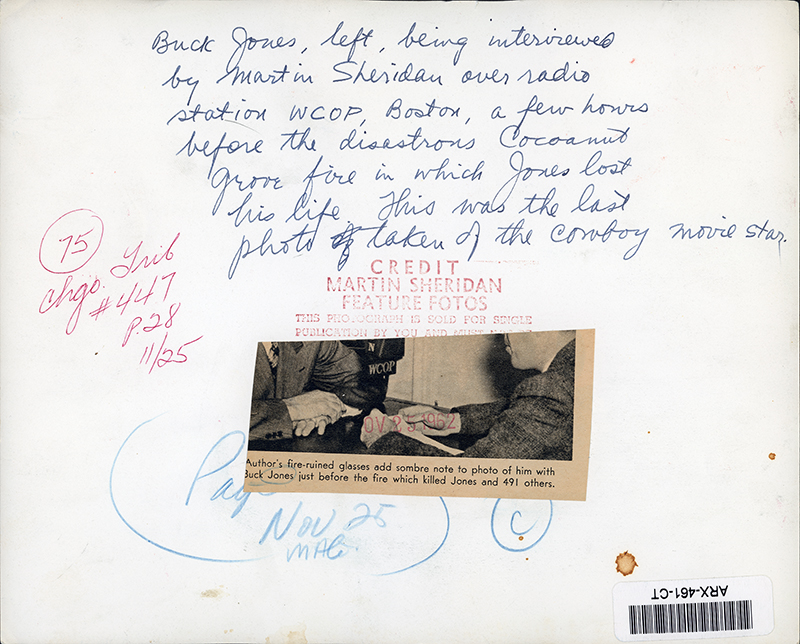 Buck Jones, left, being interviewed
by Martin Sheridan over radio
station WCOP, Boston, a few hours
before the disastrous Cocoanut
Grove fire in which Jones lost
his life. This was the last
photo taken of the cowboy movie star.
75
Chgo. Trib
#447
P. 28
11/25
CREDIT
MARTIN SHERIDAN
FEATURE FOTOS
THIS PHOTOGRAPH IS SOLD FOR SINGLE
PUBLICATION BY YOU AND MUST
N
WCOP
OV 25 1962
Author's fire-ruined glasses add sombre note to photo of him with
Buck Jones just before the fire which killed Jones and 491 others.
Nov 25
MAG.
C
ARX-461-CT